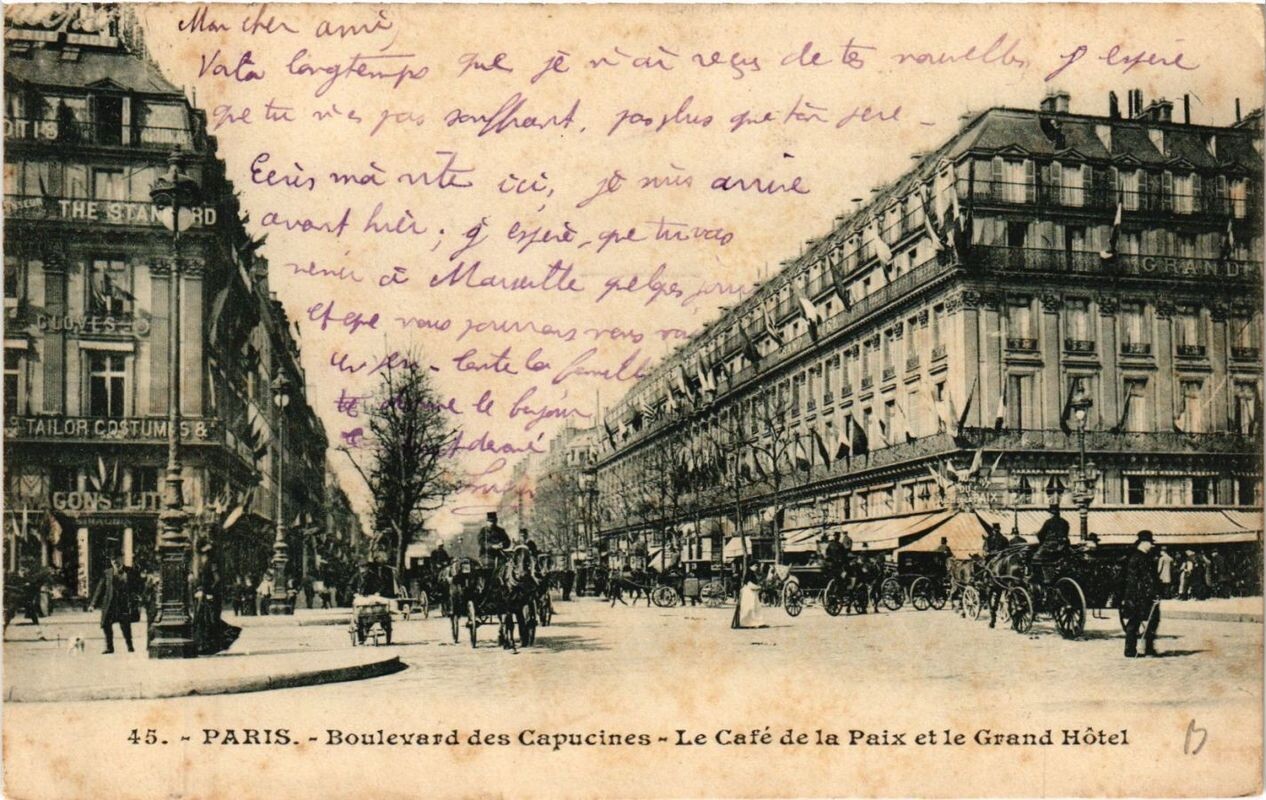 Mon cher ami,
Voila longtemps que je n'ai reçus de tes nouvelles, j'espère
que tu n'es pas souffrant, pas plus que ton père –
Ecris moi vite ici, je suis arrivé
avant hier; j'espère, que tu vas
venir à Marseille quelques jours
et que nous pourrons nous
toute la famille
te donne le bojour
OTIS
THE STANDARD
GLOVES
TAILOR COSTUMES &
GRAND
PAIX
45. - PARIS. - Boulevard des Capucines - Le Café de la Paix et le Grand Hôtel
B